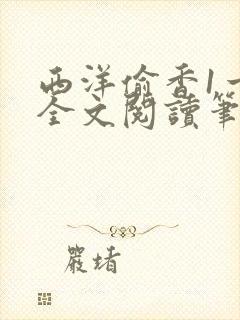 西洋偷香1一
全文閱讀筆
嚴堵